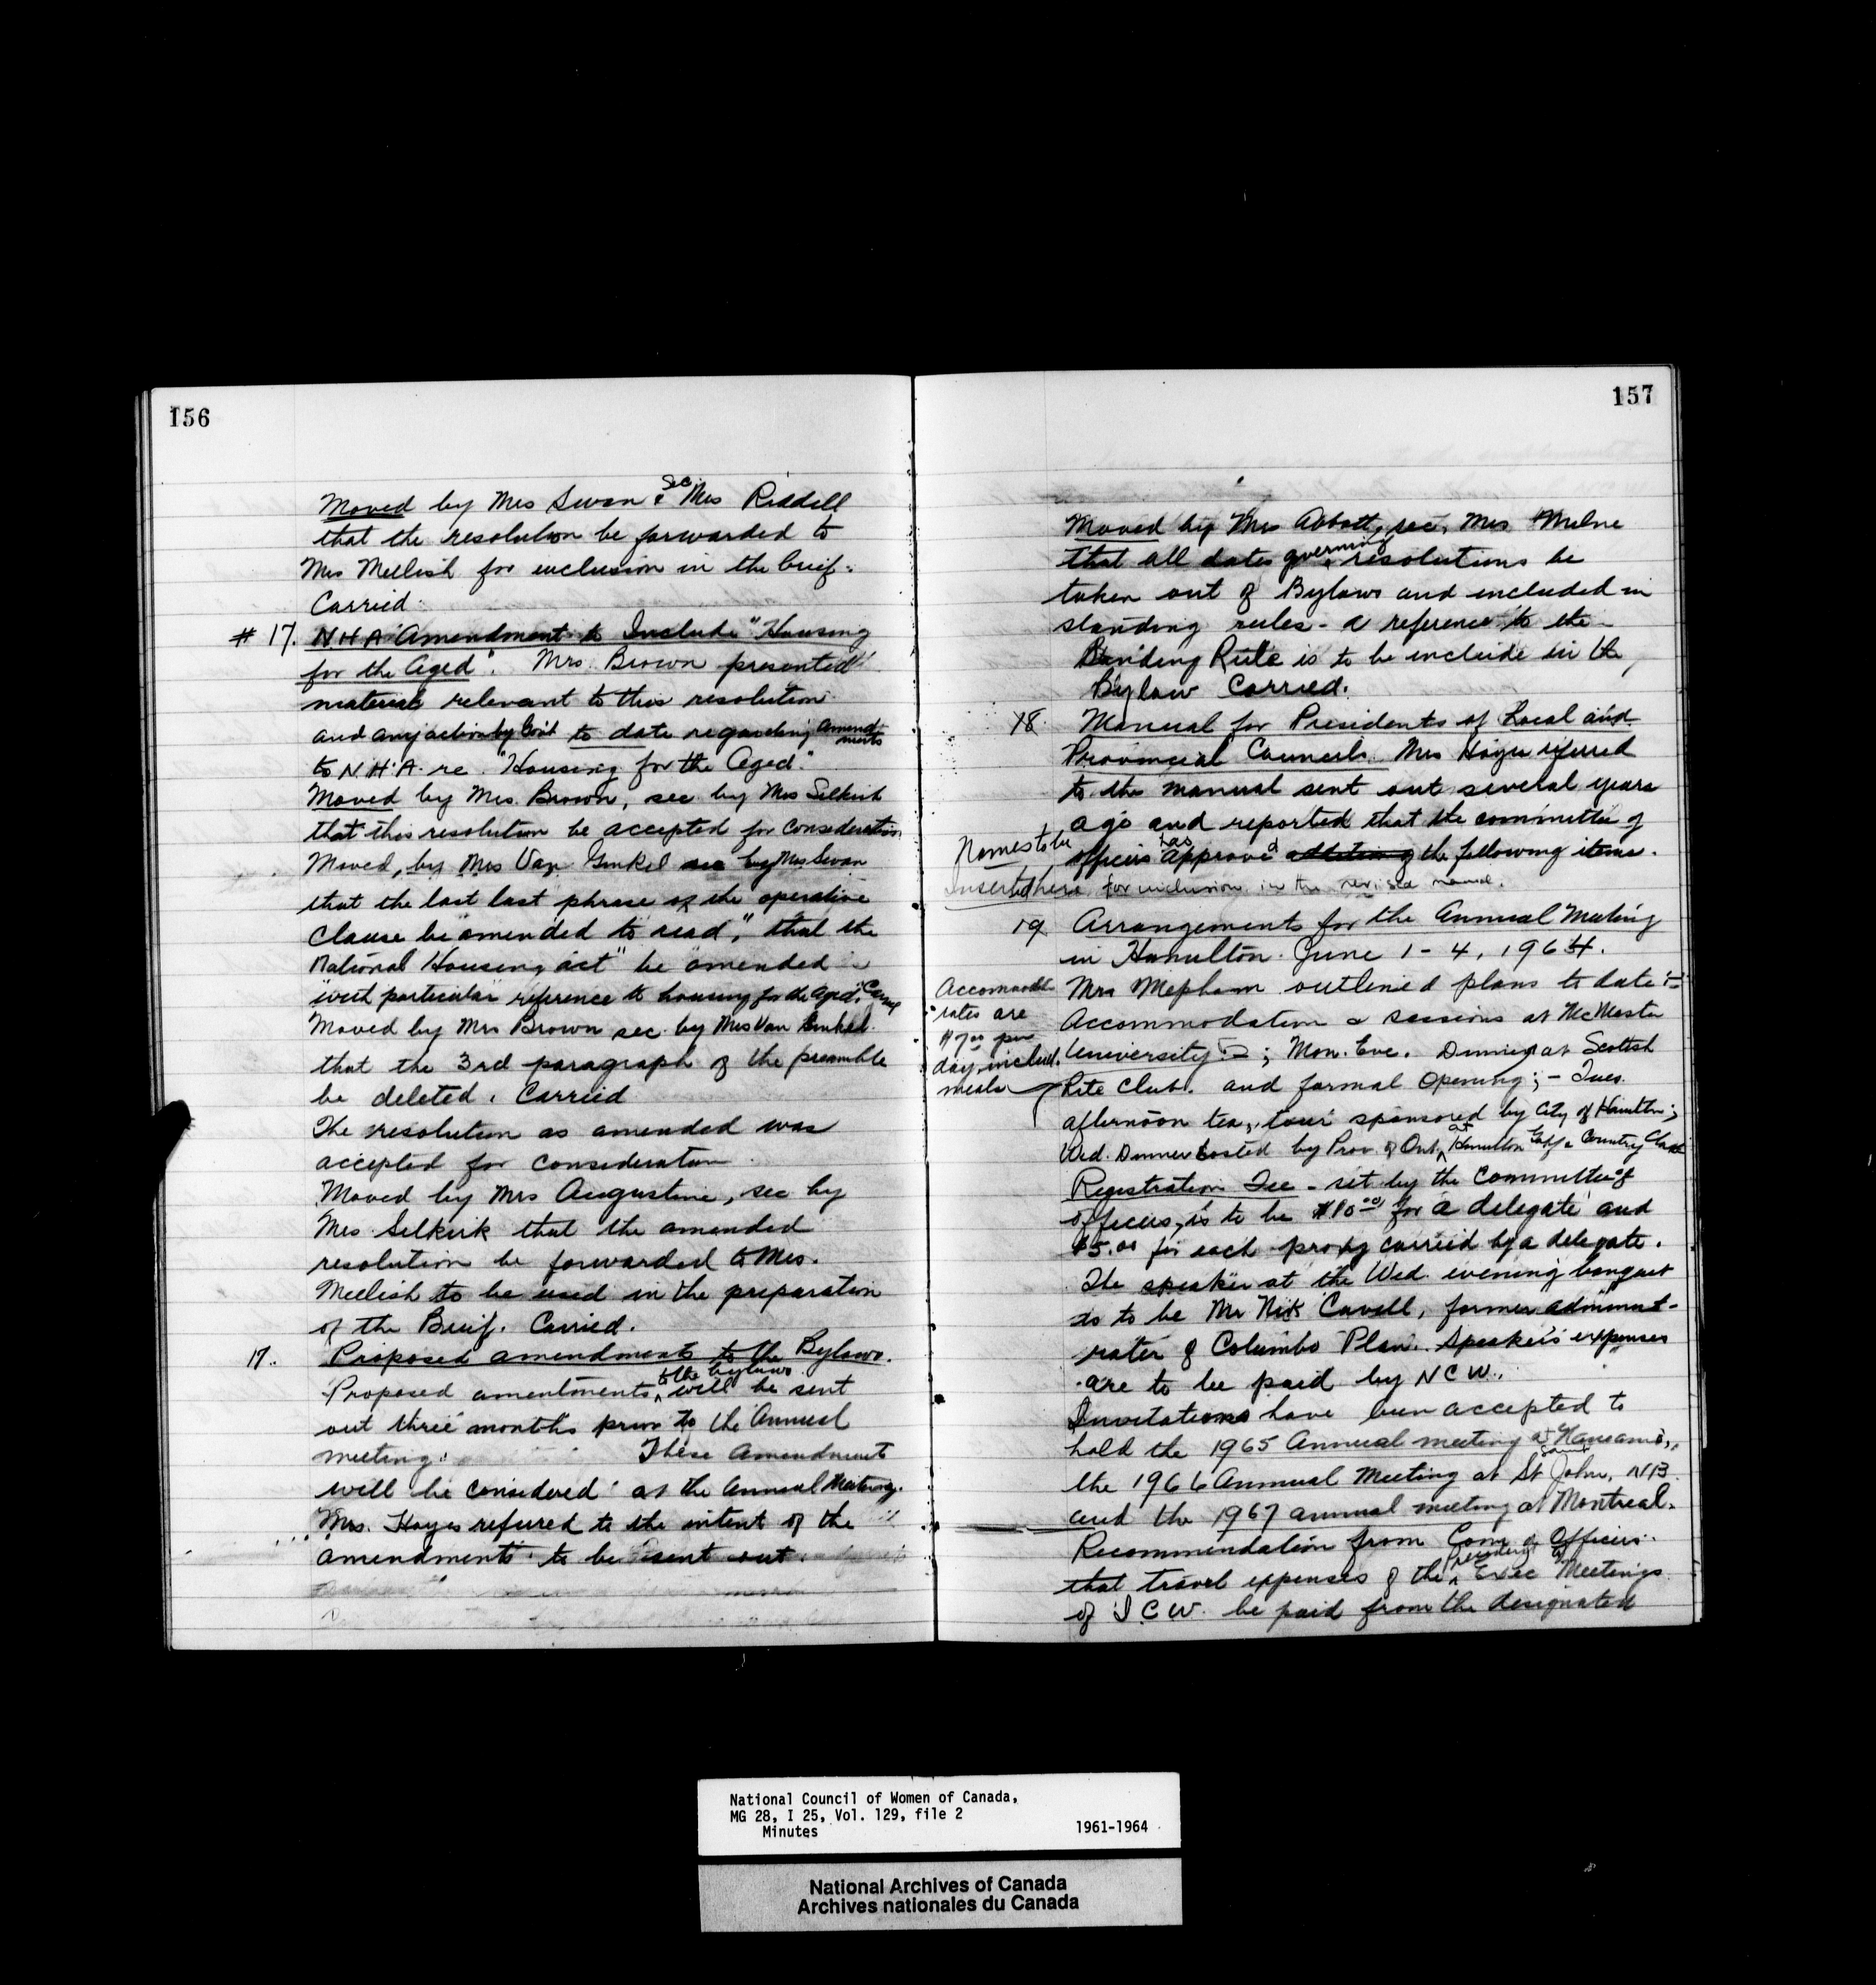 156
Moved by Mrs Swan & Sec Mrs Riddell
that the resolution be forwarded to
Mrs Meelish for inclusion in the brief.
Carried.
# 17. N H A Amendment to Include "Housing
for the Aged". Mrs. Brown presented
material relevant to this resolution
and any action by Gov't to date regarding amend
ments
to N.H.A. re "Housing for the Aged."
Moved by Mrs. Brown, sec by Mrs Selkirk
that this resolution be accepted for consideration
Moved, by Mrs Van Ginkel sec by Mrs Swan
that the last last phrase of the operative
clause be amended to read, "that the
National Housing act" be amended
with particular reference to housing for the aged." Carried
Moved by Mrs Brown sec. by Mrs Van Ginkel
that the 3rd paragraph of the preamble
be deleted. Carried
The resolution as amended was
accepted for consideration.
Moved by Mrs Augustine, sec by
Mrs Selkirk that the amended
resolution be forwarded to Mrs.
Meelish to be used in the preparation
of the Brief. Carried.
17. Proposed amendments to the Bylaws.
Proposed amentments to the bylaws will be sent
out three months prior to the Annual
meeting. These Amendment
will be considered at the Annual Meeting.
Mrs. Hayes refured to the intent of the
amendments to be sent out.
157
Moved by Mrs Abbott, sec. Mrs Milne
that all dates governing resolutions be
taken out of Bylaws and included in
standing rules - a reference to the
Standing Rule is to be include in the
Bylaw Carried.
18. Manual for Presidents of Local and
Provincial Councils. Mrs Hayes referred
to the manual sent out several years
ago and reported that the committee of
officers has approved the following items.
Names to be
Inserted here for inclusion in the revised manual.
19 Arrangements for the Annual Meeting
in Hamilton. June 1 - 4, 1964.
Mrs Mepham outlined plans to date :-
Accommodation & sessions at McMaster
University; Mon. Eve. Dinner at Scottish
Accomodat.
rates are
$7.00 per
day includ.
meals
Rite Club. and formal Opening; - Tues.
afternoon tea, tour sponsored by City of Hamilton;
Wed. Dinner hosted by Prov. of Ont, at Hamilton Golf & Country Club
Registration Fee - set by the Committee of
Officers, is to be $10.00 for a delegate and
$5.00 for each proxy carried by a delegate.
The speaker at the Wed. evening banquet
is to be Mr Nik Cavell, former administ-
rater of Columbo Plan. Speaker's expenses
are to be paid by N C W.
Invitations have been accepted to
hold the 1965 Annual meeting at Nanaimo,
the 1966 Annual Meeting at St Saint John, N.B.
and the 1967 annual meeting at Montreal.
Recommendation from Com of Officers.
that travel expenses of the President to Exec Meetings
of I C W. be paid from the designated
National Council of Women of Canada,
MG 28, I 25, Vol. 129, file 2
Minutes 1961-1964
National Archives of Canada
Archives nationales du Canada